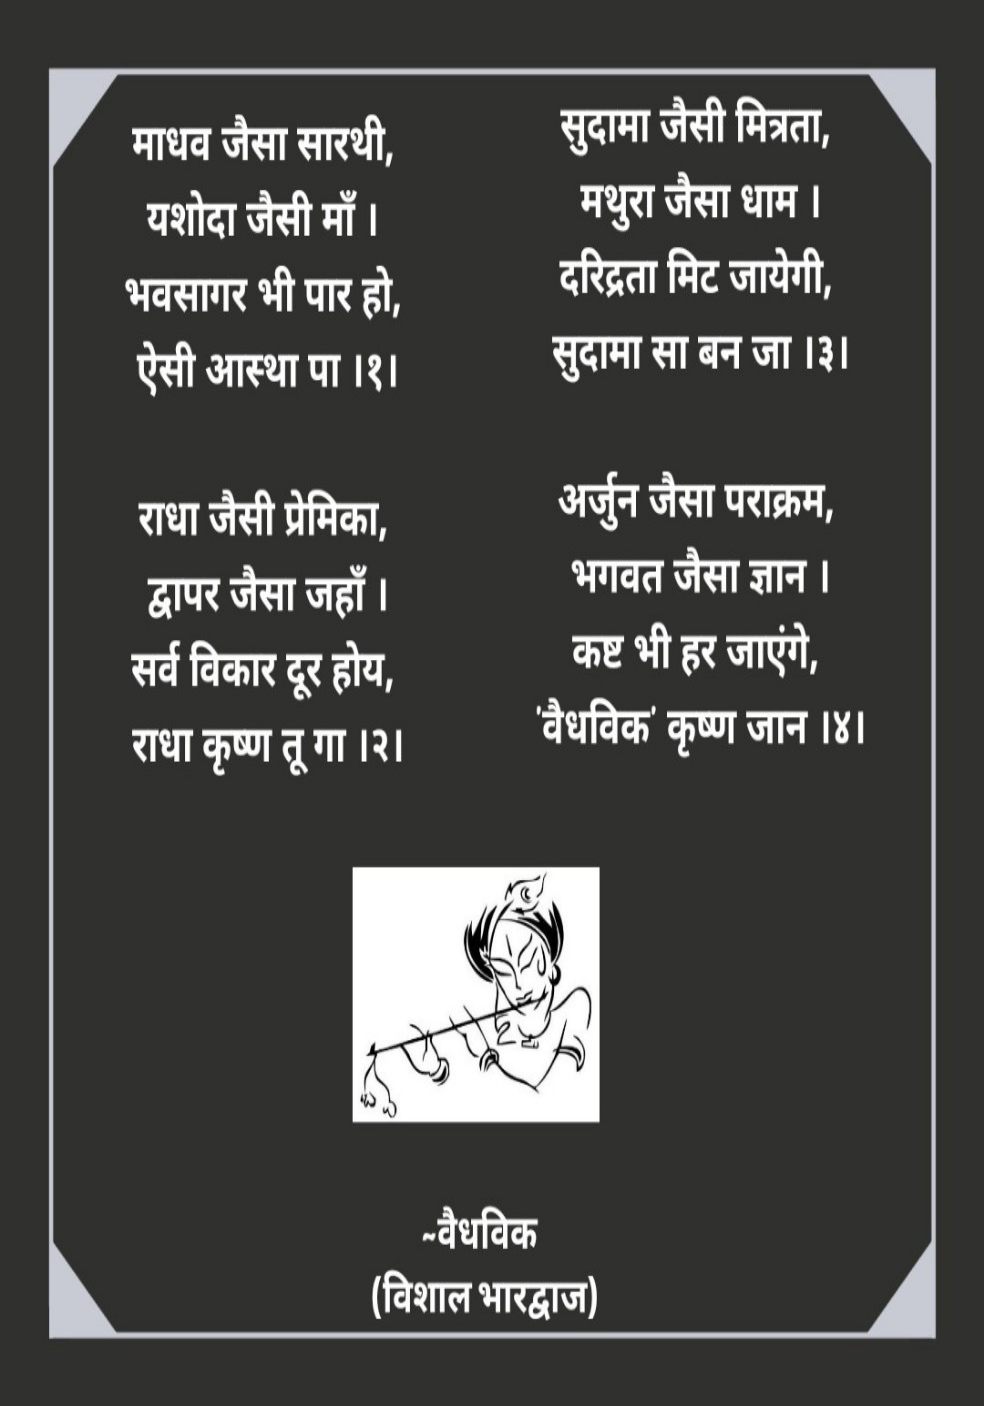 माधव जैसा सारथी,
यशोदा जैसी माँ ।
भवसागर भी पार हो,
ऐसी आस्था पा ।१।
राधा जैसी प्रेमिका,
द्वापर जैसा जहाँ ।
सर्व विकार दूर होय,
राधा कृष्ण तू गा ।२।
सुदामा जैसी मित्रता,
मथुरा जैसा धाम ।
दरिद्रता मिट जायेगी,
सुदामा सा बन जा ।३।
अर्जुन जैसा पराक्रम,
भगवत जैसा ज्ञान ।
कष्ट भी हर जाएंगे,
'वैधविक' कृष्ण जान ।४।
~वैधविक
(विशाल भारद्वाज)